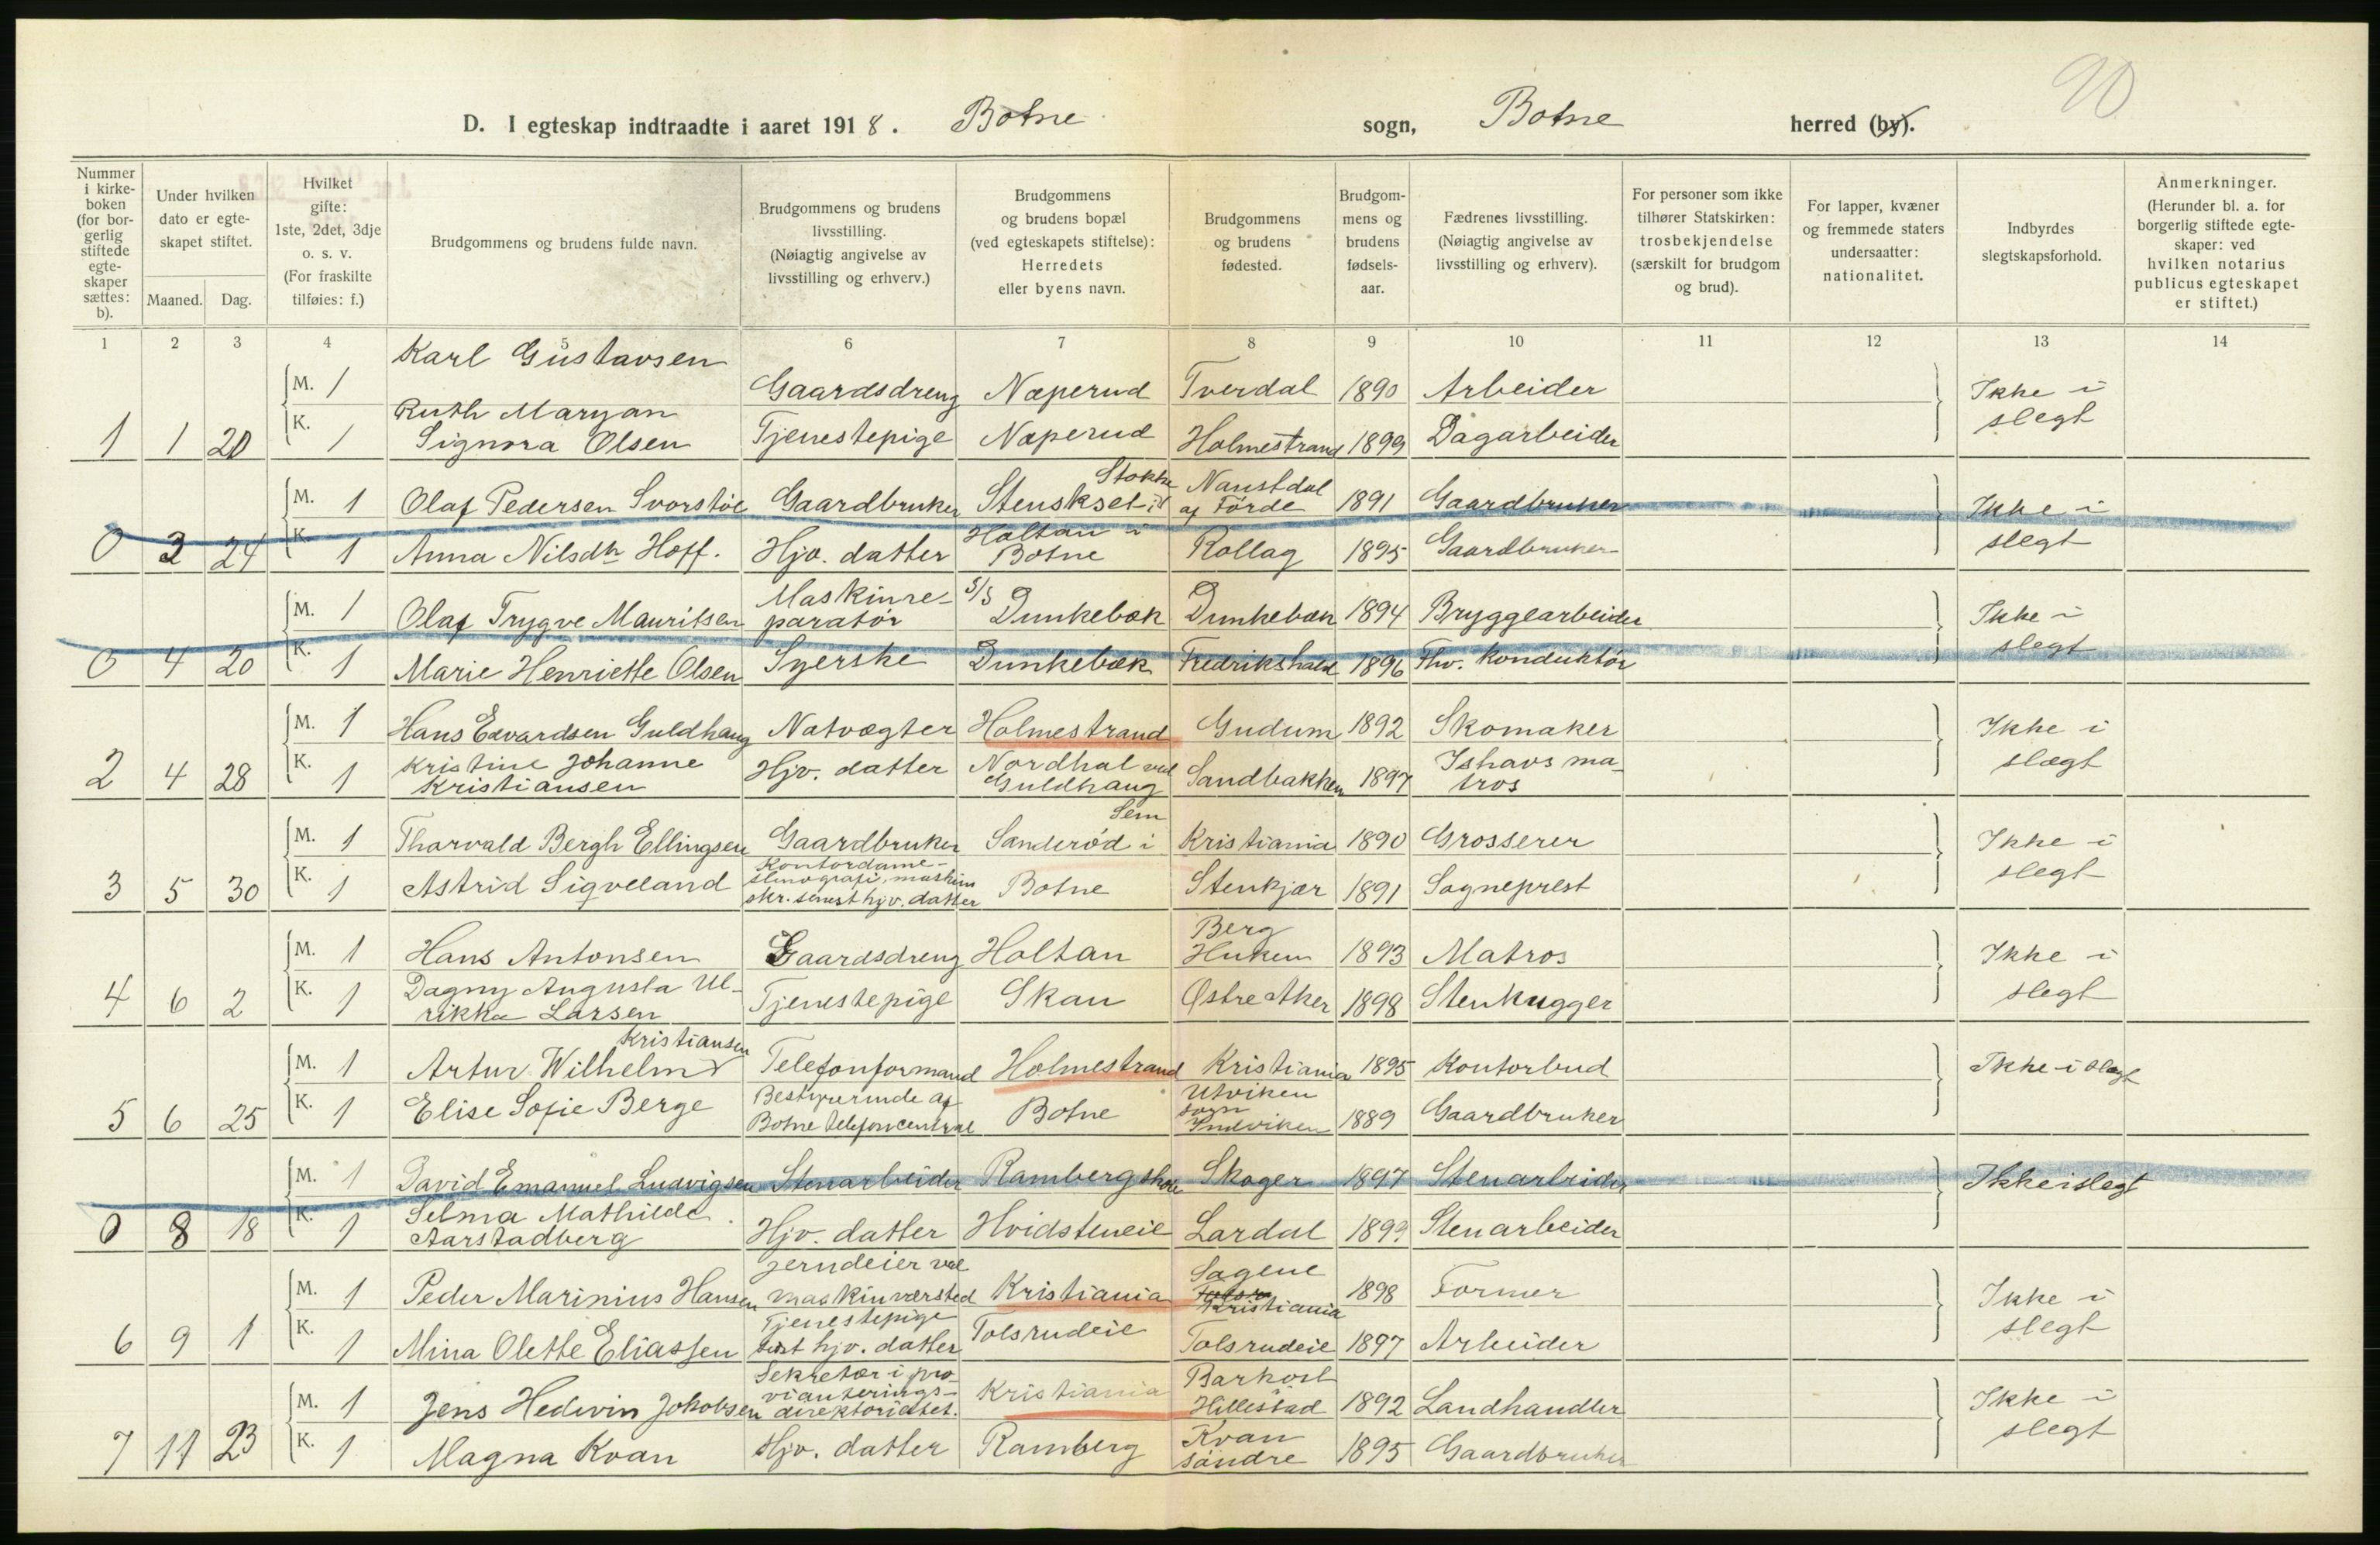 20
D. I egteskap indtraadte i aaret 1918. Botne sogn, Botne herred (by).
Nummer i kirkeboken (for borgerlig stiftede egteskaper sættes: b).
Under hvilken dato er egteskapet stiftet.
Maaned. Dag.
Hvilket gifte: 1ste, 2det, 3dje o. s. v. (For fraskilte tilføies: f.)
Brudgommens og brudens fulde navn.
Brudgommens og brudens livsstilling. (Nøiagtig angivelse av livsstilling og erhverv.)
Brudgommens og brudens bopæl (ved egteskapets stiftelse): Herredets eller byens navn.
Brudgommens og brudens fødested.
Brudgommens og brudens fødselsaar.
Fædrenes livsstilling. (Nøiagtig angivelse av livsstilling og erhverv).
For personer som ikke tilhører Statskirken: trosbekjendelse (særskilt for brudgom og brud).
For lapper, kvæner og fremmede staters undersaatter: nationalitet.
Indbyrdes slegtskapsforhold.
Anmerkninger. (Herunder bl. a. for borgerlig stiftede egteskaper: ved hvilken notarius publicus egteskapet er stiftet.)
1 2 3 4 5 6 7 8 9 10 11 12 13 14
M. 1 Karl Gustavsen Gaardsdreng Næperud Tverdal 1890 Arbeider Ikke i slegt
1 1 20 K. 1 Ruth Maryan Signora Olsen Tjenestepige Næperud Holmestrand 1899 Dagarbeider
M. 1 Olaf Pedersen Svorstøl Gaardbruker Stokke Naustdal af Førde 1891 Gaardbruker Ikke i slegt
0 3 24 K. 1 Anna Nilsdtr Hoff. Hjv. datter Holtan i Botne Rollag 1895 Gaardbruker
M. 1 Olaf Trygve Mauritsen Maskinreparatør S/S Dunkebæk Dunkebæk 1894 Bryggearbeider Ikke i slegt
0 4 20 K. 1 Marie Henriette Olsen Syerske Dunkebæk Fredrikshald 1896 Fhv. Konduktør
M. 1 Hans Edvardsen Guldhaug Natvægter Holmestrand Gudum 1892 Skomaker Ikke i slægt
2 4 28 K. 1 Kristine Johanne Kristiansen Hjv. datter Nordhal ved Guldhaug Sandbakken 1897 Ishavs matros
M. 1 Thorvald Bergh Ellingsen Gaardbruker Sanderød i Sem Kristiania 1890 Grosserer Ikke i slegt
3 5 30 K. 1 Astrid Sigveland Kontordame - stenografi, maskinskr. senest hjv. datter Botne Stenkjær 1891 Sogneprest
M. 1 Hans Antonsen Gaardsdreng Holtan Berg Huken 1893 Matros Ikke i slegt
4 6 2 K. 1 Dagny Augusta Ulrikke Larsen Tjenestepige Skau Østre Aker 1898 Stenhugger
M. 1 Artur Wilhelm Kristiansen Telefonformand Holmestrand Kristiania 1895 Kontorbud Ikke i slægt
5 6 25 K. 1 Elise Sofie Berge Bestyrerinde af Botne telefoncentral Botne Utviken sogn Indviken 1889 Gaardbruker
M. 1 David Emanuel Ludvigsen Stenarbeider Rambergskov Skoger 1897 Stenarbeider Ikke i slegt
0 8 18 K. 1 Selma Mathilde Aarstadberg Hjv. datter Hvidsteneie Lardal 1899 Stenarbeider
M. 1 Peder Marinius Hansen Jerndeier ved maskinværsted Kristiania Sagene Kristiania 1898 Former Ikke i slegt
6 9 1 K. 1 Mina Olette Eliassen Tjenestepige sist hjv. datter Tolsrudeie Tolsrudeie 1897 Arbeider
M. 1 Jens Hedevin Jakobsen Sekretær i provianteringsdirektoriatet. Kristiania Barkost Hillestad 1892 Landhandler Ikke i slegt
7 11 23 K. 1 Magna Kvan Hjv. datter Ramberg Kvan søndre 1895 Gaardbruker